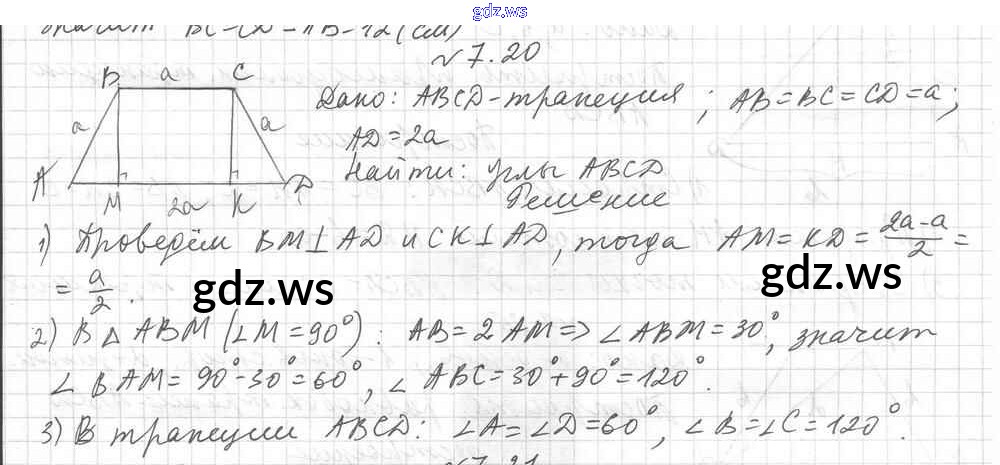 gdz.ws
значит BC=CD=AB=12(см)
№7.20
B a C
a a
A M 2a K D
Дано: ABCD-трапеция; AB=BC=CD=a;
AD=2a
Найти: углы ABCD
Решение
1) Проведём BM⊥AD и CK⊥AD, тогда AM=KD=(2a-a)/2=
=a/2.
gdz.ws gdz.ws
2) В △ABM (∠M=90°): AB=2AM=>∠ABM=30°, значит
∠BAM=90°-30°=60°, ∠ABC=30°+90°=120°.
3) В трапеции ABCD: ∠A=∠D=60°, ∠B=∠C=120°.
№7.21